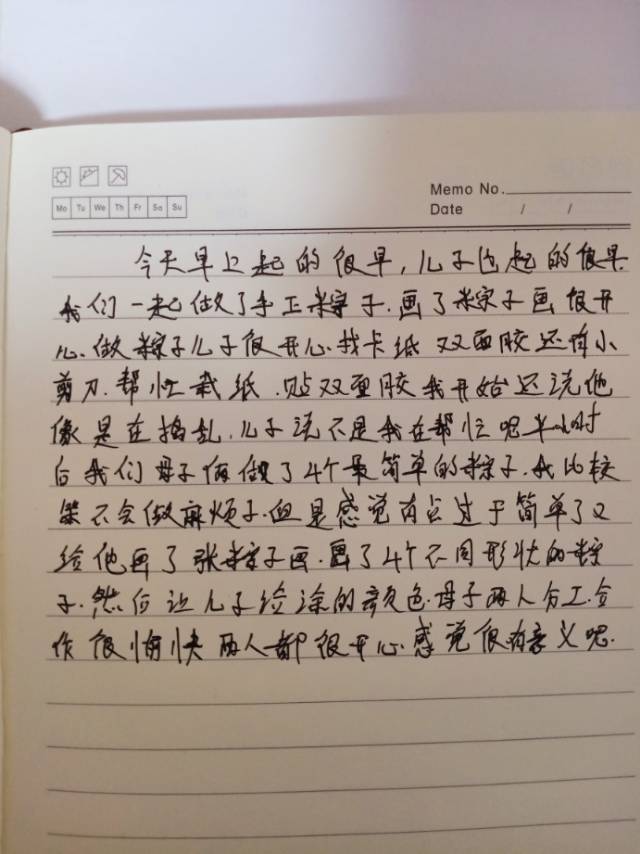 Memo No.
Mo Tu We Th Fr Sa Su
Date / /
今天早上起的很早,儿子也起的很早.
我们一起做了手工粽子.画了粽子画很开
心.做粽子儿子很开心.找卡纸 双面胶还有小
剪刀.帮忙裁纸.贴双面胶我开始还说他
像是在捣乱.儿子说不是我在帮忙呢半小时
后我们母子俩做了4个最简单的粽子.我比较
笨不会做麻烦子.但是感觉有点过于简单了又
给他画了张粽子画.画了4个不同形状的粽
子.然后让儿子给涂的颜色.母子两人分工合
作很愉快两人都很开心.感觉很有意义呢.